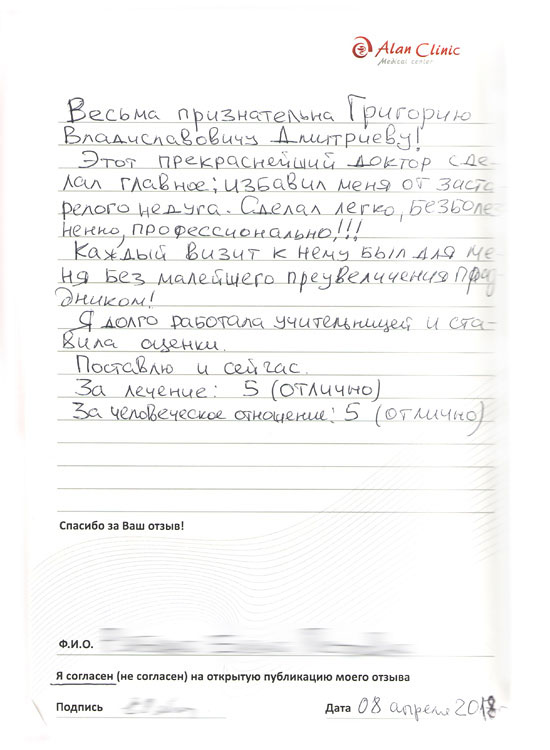 Alan Clinic
Medical center
Весьма признательна Григорию
Владиславовичу Дмитриеву!
Этот прекраснейший доктор сде-
лал главное; избавил меня от заста
релого недуга. Сделал легко, безболез
ненно, профессионально!!!
Каждый визит к нему был для ме-
ня без малейшего преувеличения праз
дником!
Я долго работала учительницей и ста-
вила оценки.
Поставлю и сейчас.
За лечение: 5 (отлично)
За человеческое отношение: 5 (отлично)
Спасибо за Ваш отзыв!
Ф.И.О.
Я согласен (не согласен) на открытую публикацию моего отзыва
Подпись
Дата 08 апреля 2018